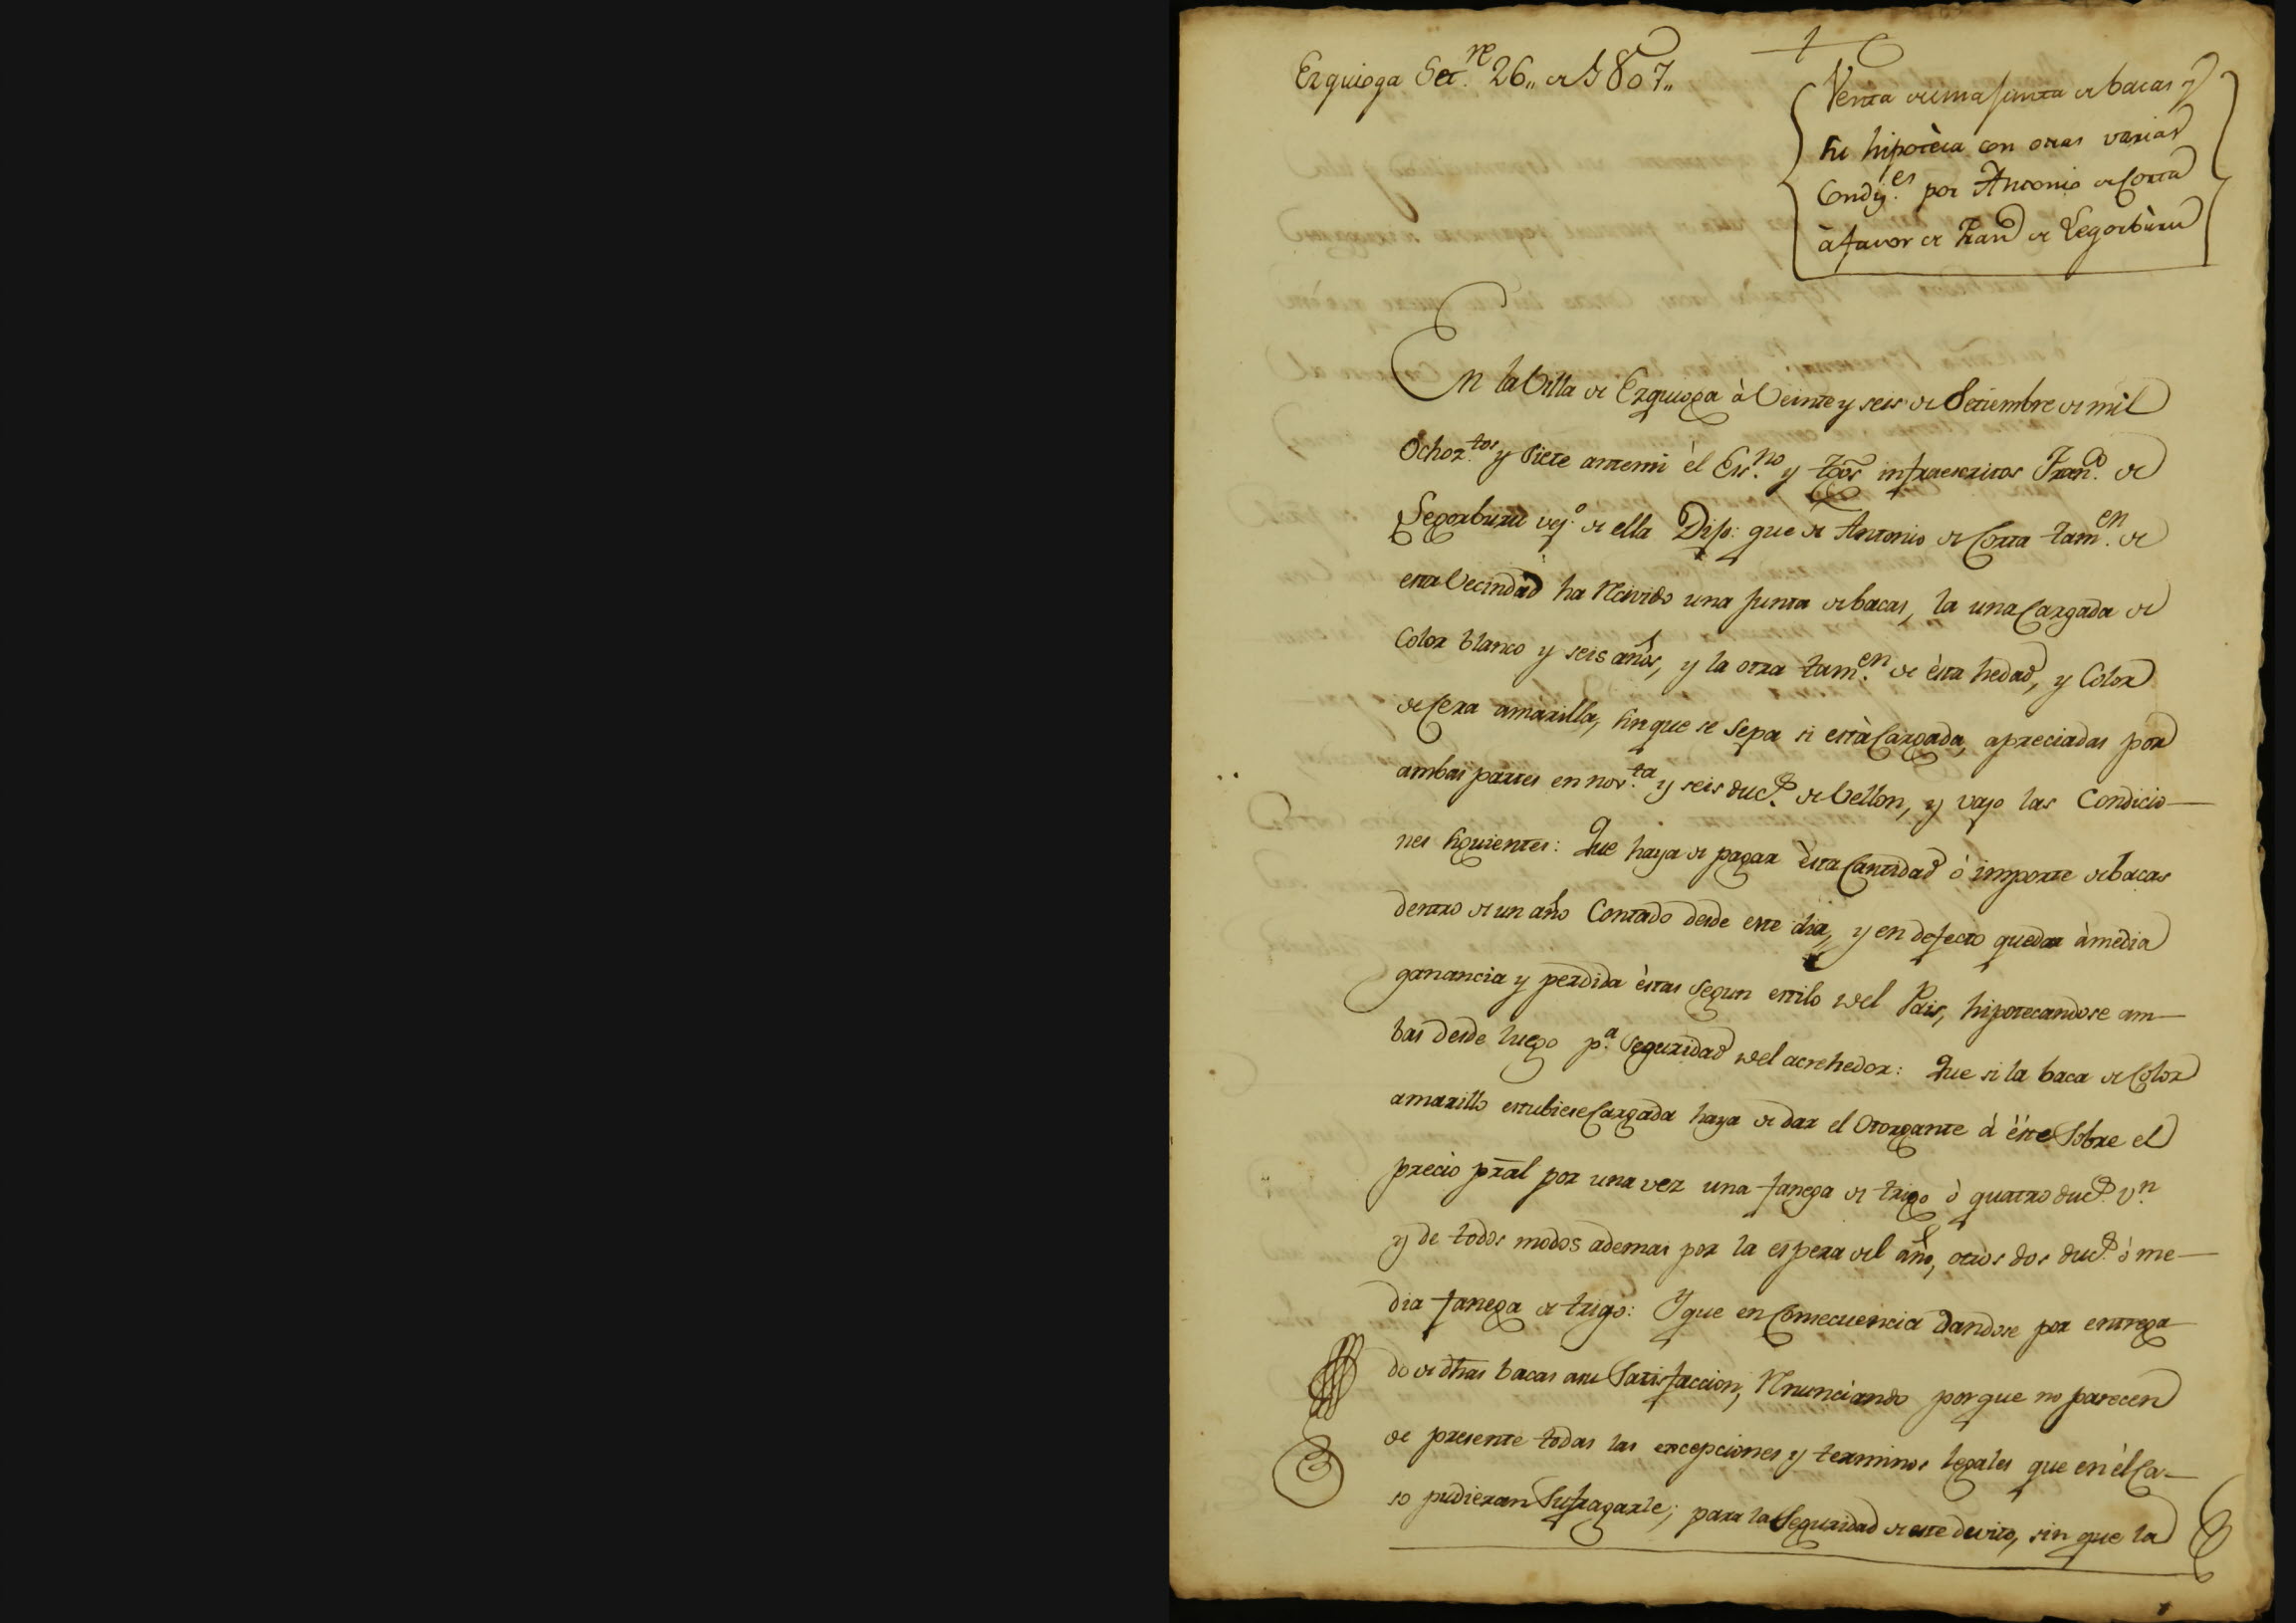 Ezquioga Set.re 26,, de 1807,,
Venta de una junta de bacas y
su hipotèca con otras varias
Condiz.es por Antonio de Corta
à favor de Fran.co de Legorbùru
En la Villa de Ezquioga à Veinte y seis de Setiembre de mil
Ochoz.tos y siete antemi èl Es.no y tgos infraescritos Fran.co de
Legorburu vez.o de ella Dijo: que de Antonio de Corta tam.en de
esta Vecindad ha Recivido una junta de bacas, la una Cargada de
Color blanco y seis años, y la otra tam.en de èsta hedad, y Color
de Cera amarilla, sin que se sepa si està Cargada, apreciadas por
ambas partes en nov.ta y seis duc.s de Vellon, y vajo las Condicio-
nes siguientes: Que haya de pagar èsta Cantidad ò importe de bacas
dentro de un año Contado desde este dia, y en defecto quedar à media
ganancia y perdida èstas segun estilo del Pais, hipotecandose am-
bas desde luego p.a seguridad del acrehedor: Que si la baca de Color
amarillo estubiese Cargada haya de dar el Otorgante à èste Sobre el
precio pral por una vez una fanega de trigo ò quatro duc.s v.n
y de todos modos ademas por la espera del año, otros dos duc.s ò me-
dia fanega de trigo: Y que en Consecuencia dandose por entrega-
do de dhas bacas asu Satisfaccion, Renunciando porque no parecen
de presente todas las excepciones y terminos legales que en èl Ca-
so pudieran Sufragarle; para la Seguridad de este devito, sin que la